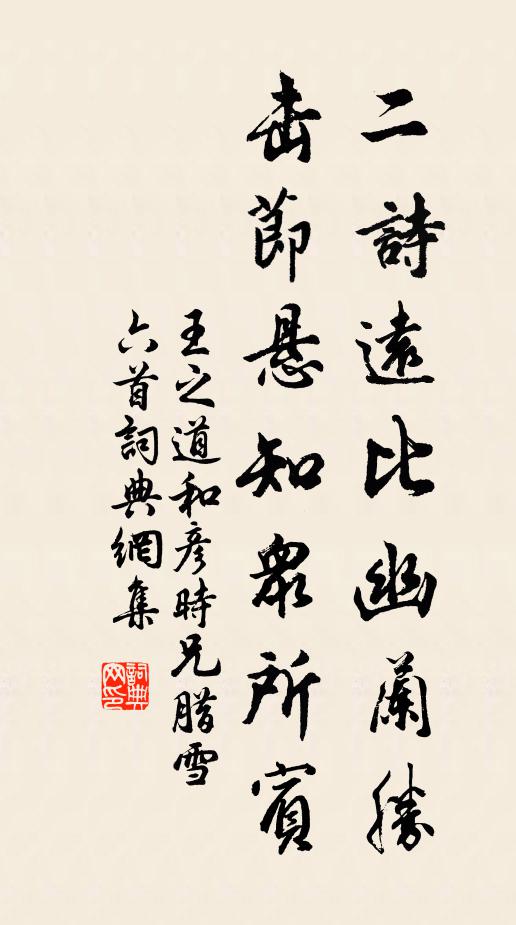 二詩遠比幽蘭勝
击節懸知衆所賓
王之道和彦時兄腊雪
六首詞典網集
詞典网印